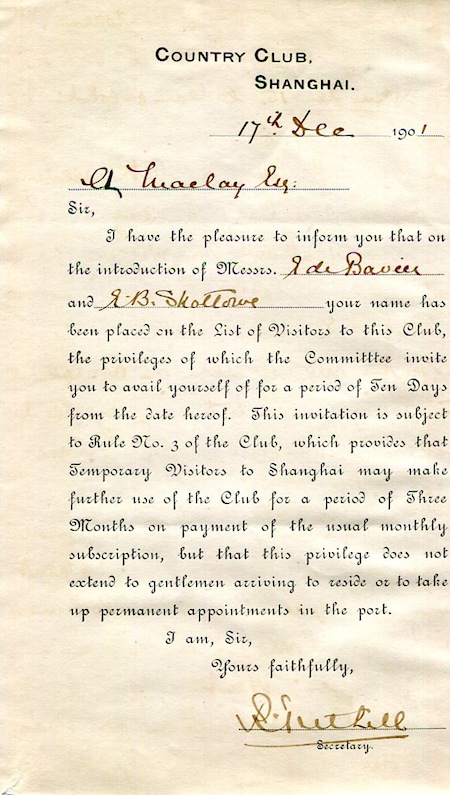 COUNTRY CLUB,
SHANGHAI.
17th Dec 1901
Maclay Esq:
Sir,
I have the pleasure to inform you that on
the introduction of Messrs. E de Bavier
and E. B. Skottowe your name has
been placed on the List of Visitors to this Club,
the privileges of which the Committtee invite
you to avail yourself of for a period of Ten Days
from the date hereof. This invitation is subject
to Rule No. 3 of the Club, which provides that
Temporary Visitors to Shanghai may make
further use of the Club for a period of Three
Months on payment of the usual monthly
subscription, but that this privilege does not
extend to gentlemen arriving to reside or to take
up permanent appointments in the port.
I am, Sir,
Yours faithfully,
Secretary.